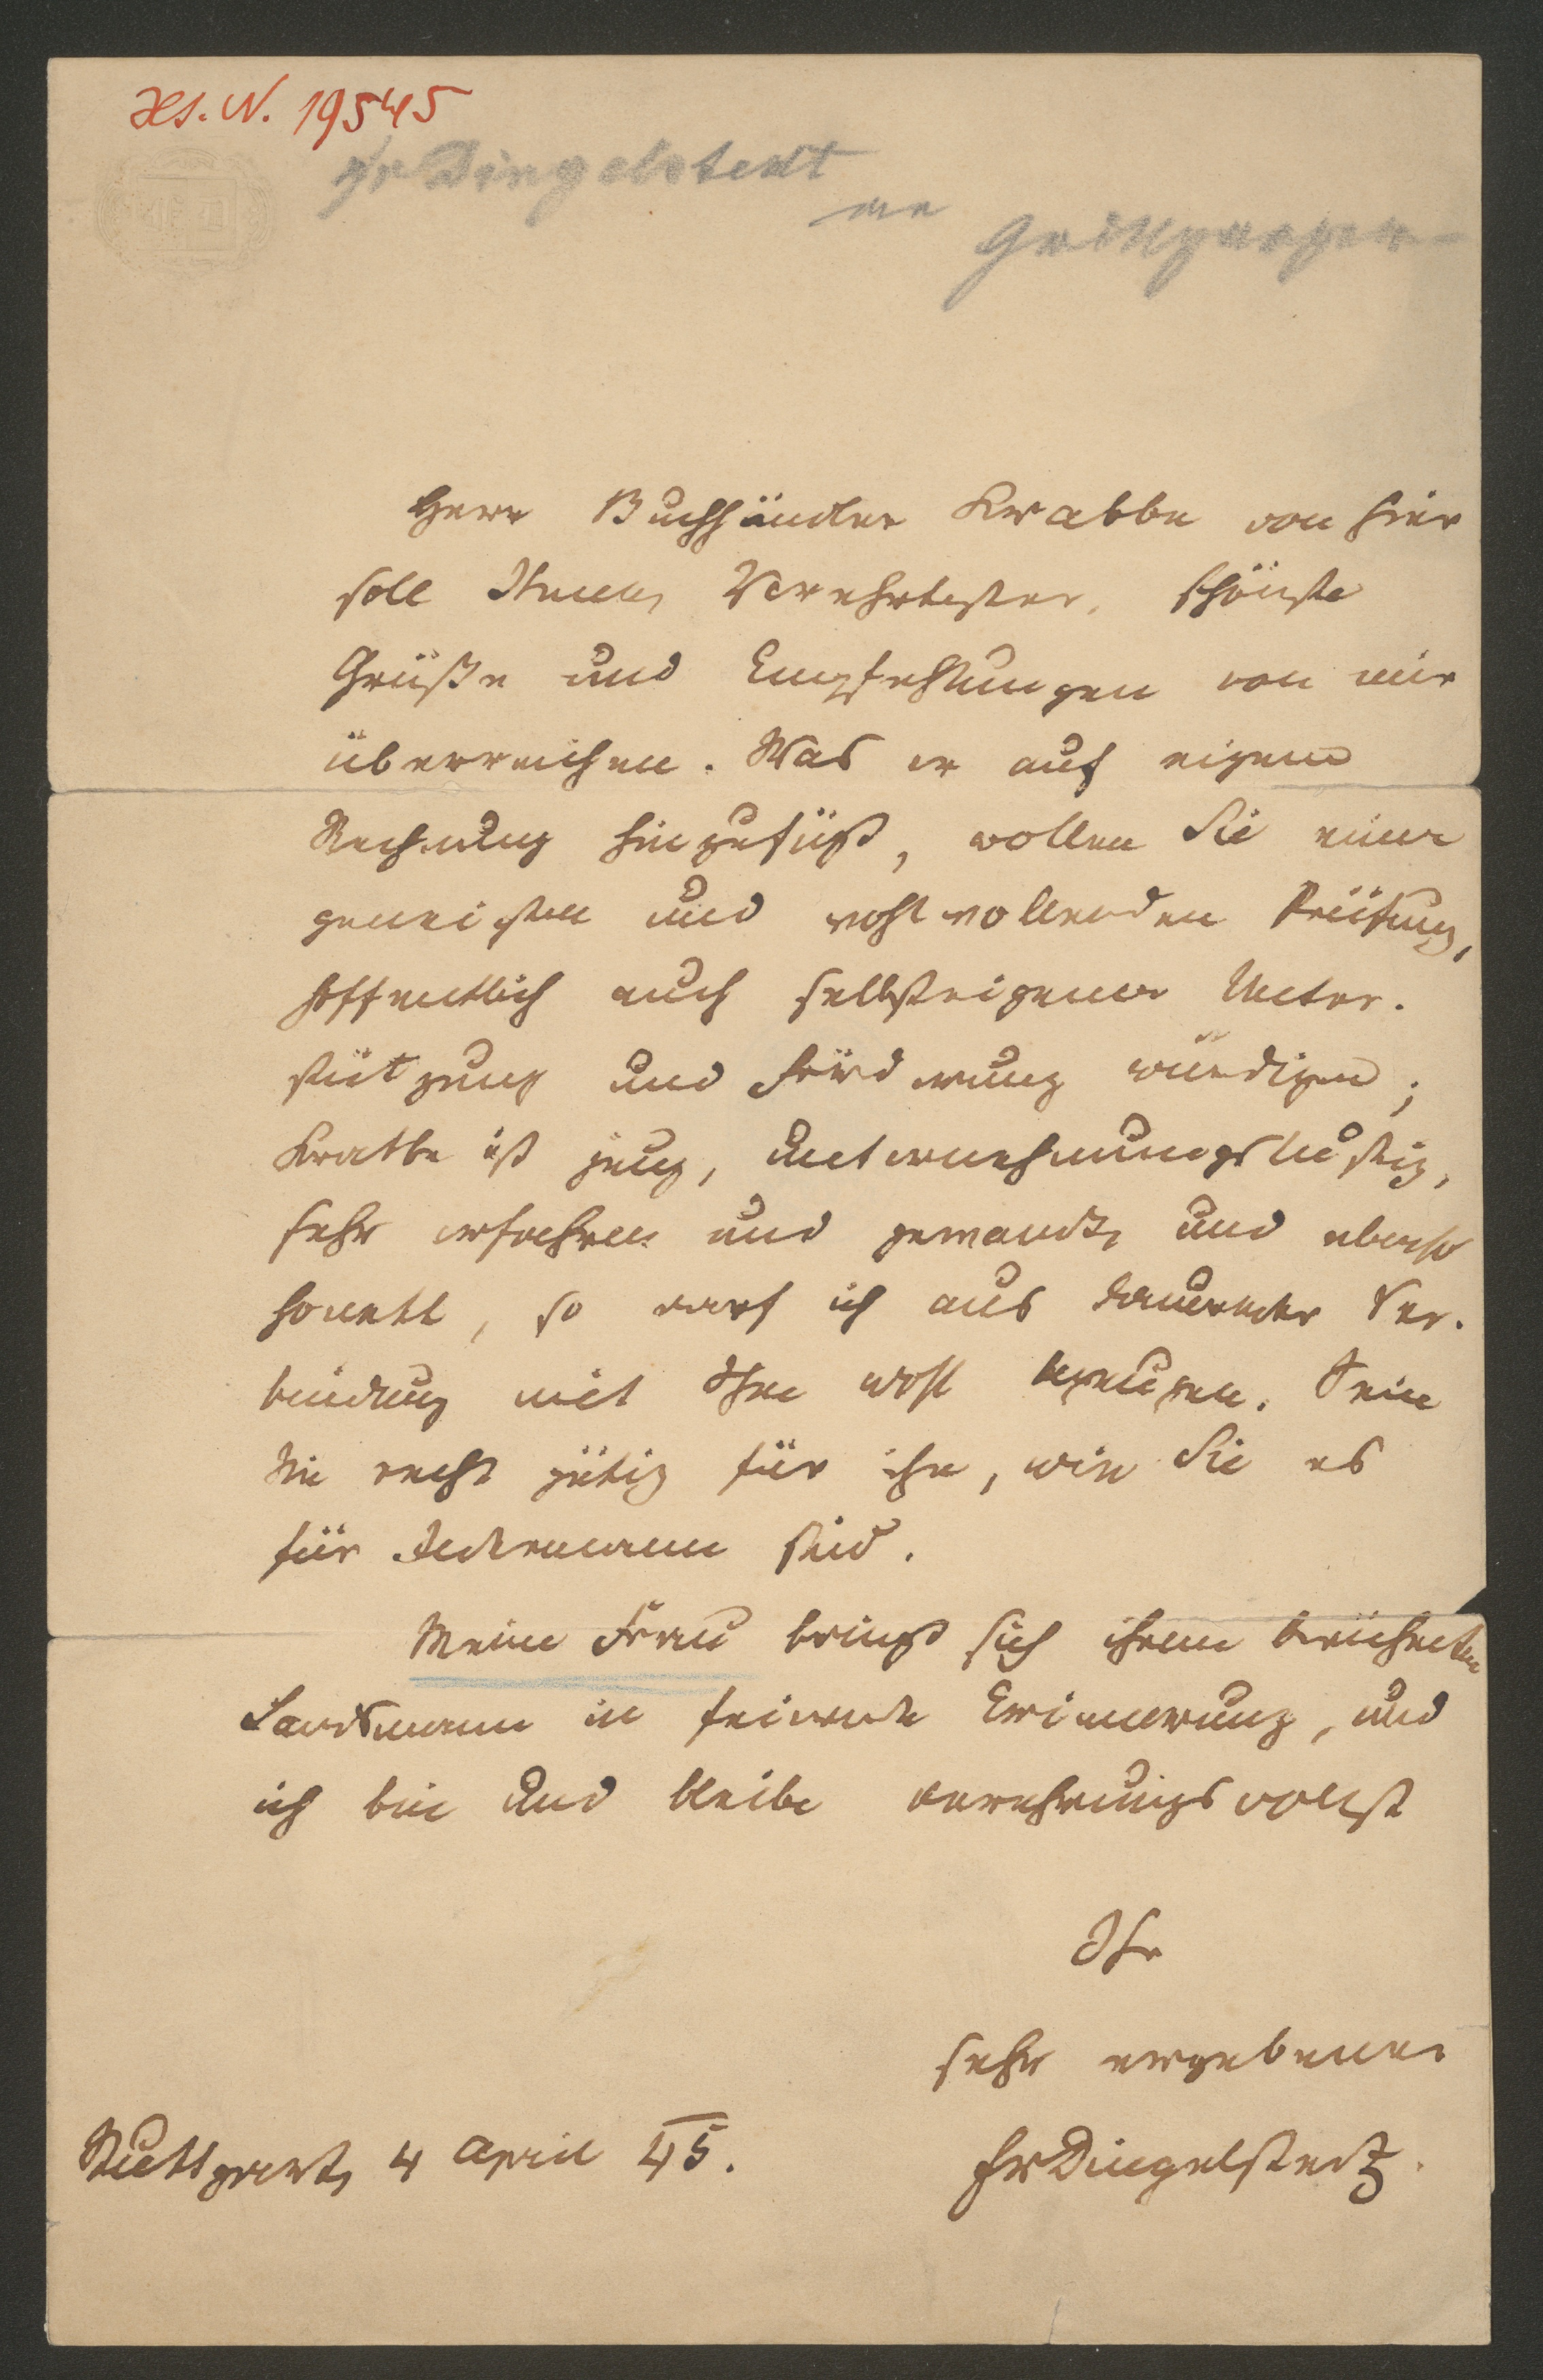 Hs. N. 19545
Fr Dingelstedt
an
Grillparzer
Herr Buchhändler Krabbe von hier
soll Ihnen, Verehrtester, schönste
Grüße und Empfehlungen von mir
überreichen. Was er auf eigene
Rechnung hinzufügt, wollen Sie einer
geneigten und wohlwollenden Prüfung,
hoffentlich auch selbsteigener Unter-
stützung und Förderung würdigen;
Krabbe ist jung, unternehmungslustig,
sehr erfahren und gewandt, und ebenso
honett, so darf ich aus dauernder Ver-
bindung mit Ihm wohl bezeugen. Sein
Sie recht gütig für ihn, wie Sie es
für Jedermann sind.
Meine Frau bringt sich ihrem berühmten
Landsmann in Erinnerung, und
ich bin und bleibe verehrungsvollst
Ihr
sehr ergebener
FrDingelstedt.
Stuttgart, 4 April 45.